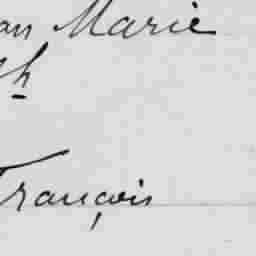 an Marie
ph
François